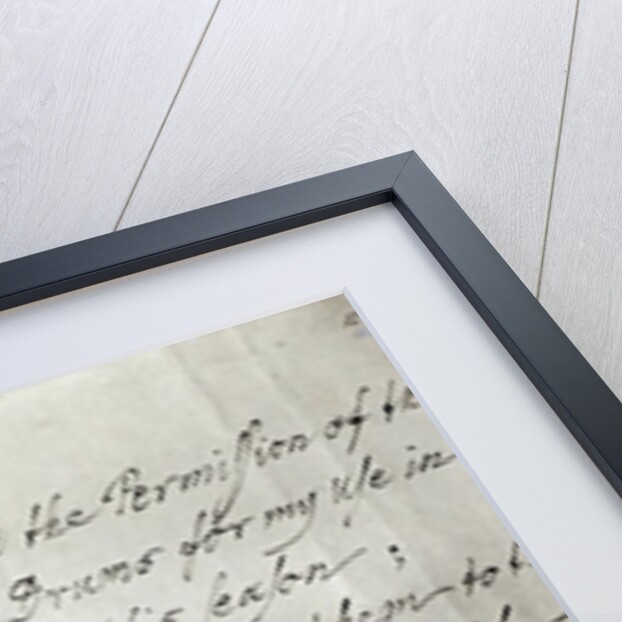 the Permiſſion of th
Drums for my uſe in
ſeaſon ;
them to t